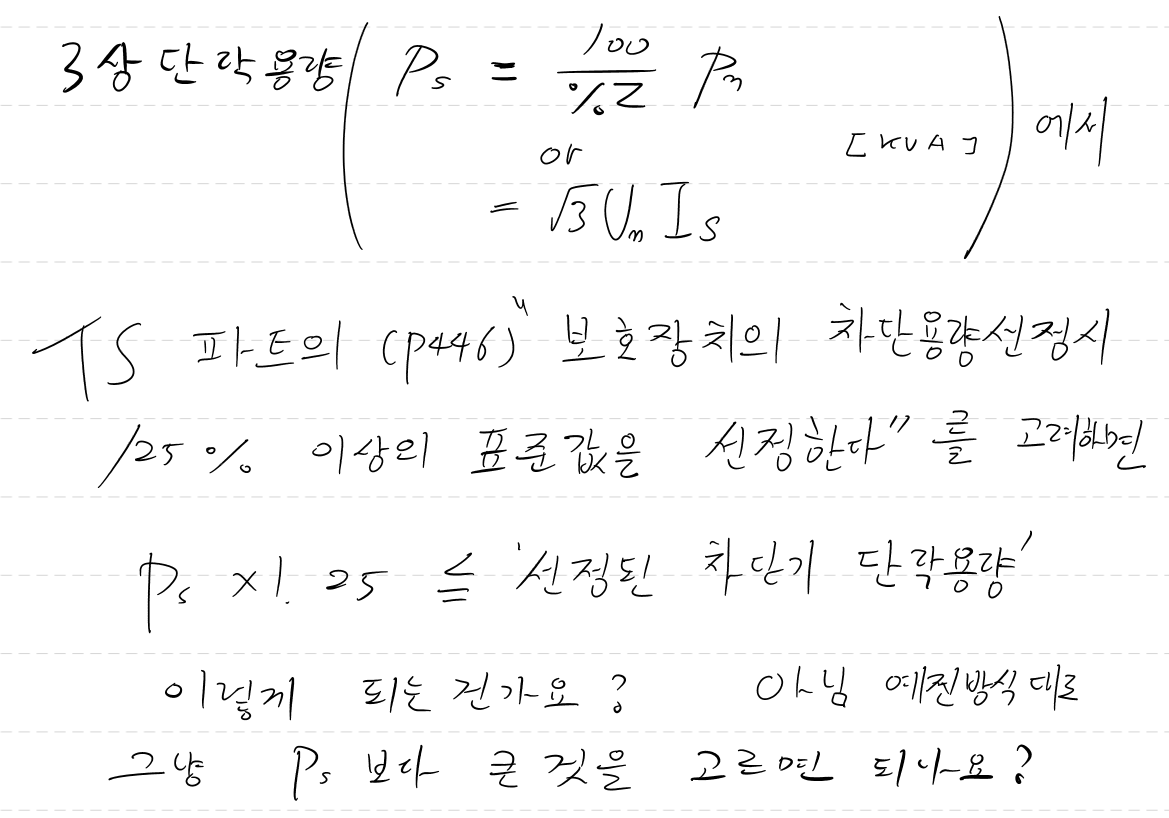 3상 단락용량 ( Ps = 100/%Z Pn
or [KVA] ) 에서
= √3 Un Is
TS 파트의 (P446) "보호장치의 차단용량선정시
125% 이상의 표준값을 선정한다" 를 고려하면
Ps × 1.25 ≦ '선정된 차단기 단락용량'
이렇게 되는 건가요? 아님 예전방식 대로
그냥 Ps 보다 큰 것을 고르면 되나요?